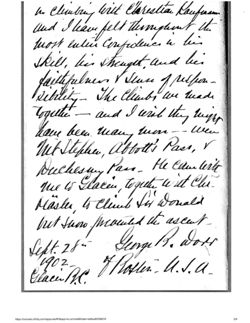 in climbing with Christian Kaufmann
and I have felt throughout the
most entire confidence in his
skill, his strength and his
faithfulness & sense of respon-
sibility. The climbs we made
together — and I wish they might
have been many more — were
Mt Stephen, Abbott's Pass, &
Duchesnay Pass. He came with
me to Glacier, together with Chr.
Häsler, to climb Sir Donald
but snow prevented the ascent.
George B. Dorr
Sept. 28th
1902. of Boston - U.S.A.
Glacier B.C.